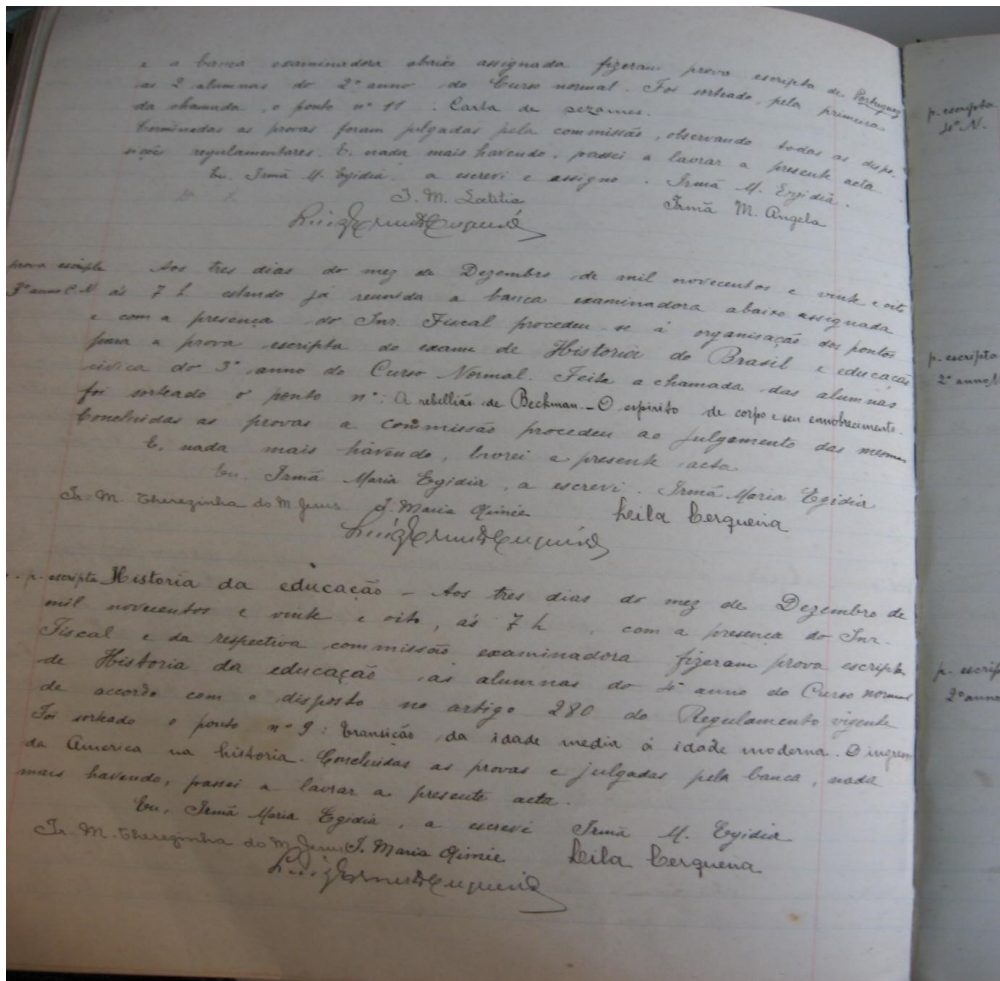 e a banca examinadora abaixo assignada fizeram prova escripta de Portuguez
as 2 alumnas do 2º anno do Curso normal. Foi sorteado, pela primeira
da chamada, o ponto nº 11: Carta de pezames.
Terminadas as provas foram julgadas pela commissão, observando todas as dispo-
sições regulamentares. E, nada mais havendo, passei a lavrar a presente acta.
Eu, Irmã M. Egidia, a escrevi e assigno. Irmã M. Egidia.
I. M. Laetitia
Irmã M. Angela
prova escripta
3º anno C. N.
Aos tres dias do mez de Dezembro de mil novecentos e vinte e oito
ás 7 h estando já reunida a banca examinadora abaixo assignada
e com a presença do Snr. Fiscal procedeu-se á organisação dos pontos
para a prova escripta do exame de Historia do Brasil e educação
civica do 3º anno do Curso Normal. Feita a chamada das alumnas
foi sorteado o ponto nº: A rebellião de Beckman. - O espirito de corpo e seu ennobrecimento.
Concluidas as provas a commissão procedeu ao julgamento das mesmas
E, nada mais havendo, lavrei a presente acta
Eu, Irmã Maria Egidia, a escrevi. Irmã Maria Egidia
Ir. M. Therezinha do M. Jesus
I. Maria Aimée
Leila Cerqueira
p. escripta Historia da educação - Aos tres dias do mez de Dezembro de
mil novecentos e vinte e oito, ás 7 h, com a presença do Snr.
Fiscal e da respectiva commissão examinadora fizeram prova escripta
de Historia da educação as alumnas do 4º anno do Curso normal
de accordo com o disposto no artigo 280 do Regulamento vigente
Foi sorteado o ponto nº 9: Transição da idade media á idade moderna. O ingresso
da America na historia. Concluidas as provas e julgadas pela banca, nada
mais havendo, passei a lavrar a presente acta.
Eu, Irmã Maria Egidia, a escrevi Irmã M. Egidia
Ir. M. Therezinha do M. Jesus I. Maria Aimée
Leila Cerqueira
p. escripta
4º N.
p. escripta
2º anno
p. escrip
2º anno